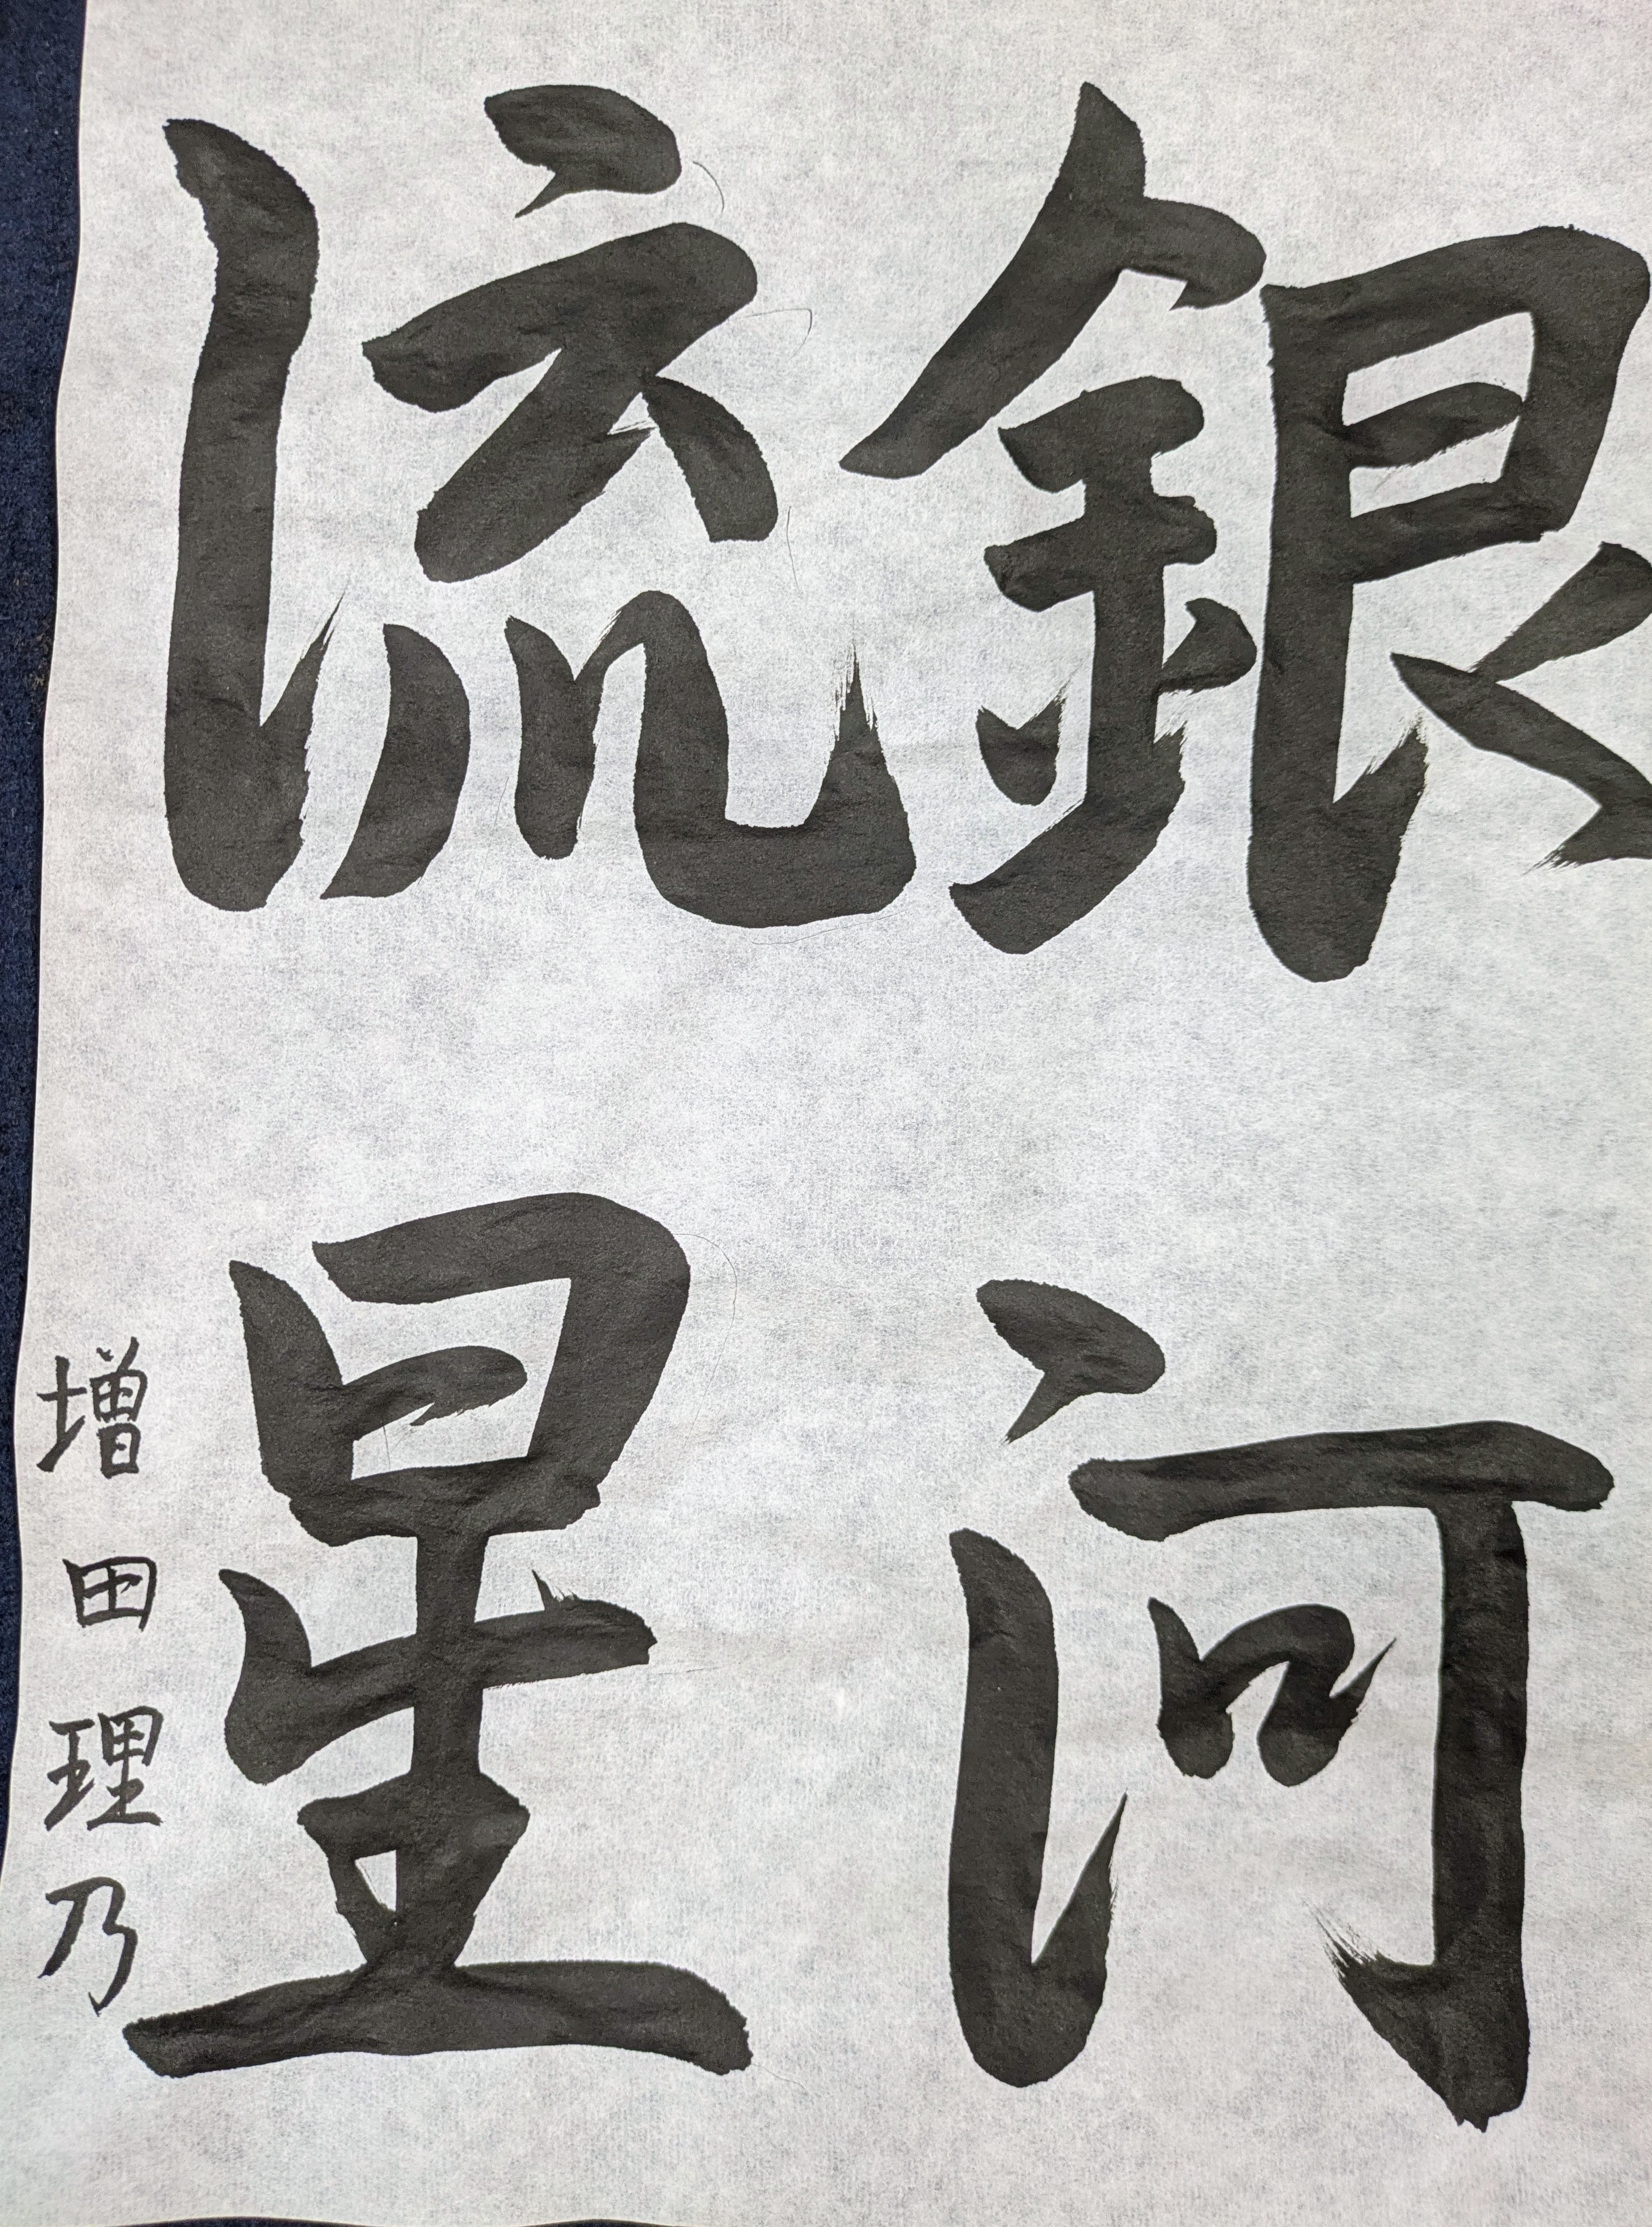 銀河
流星
増田理乃